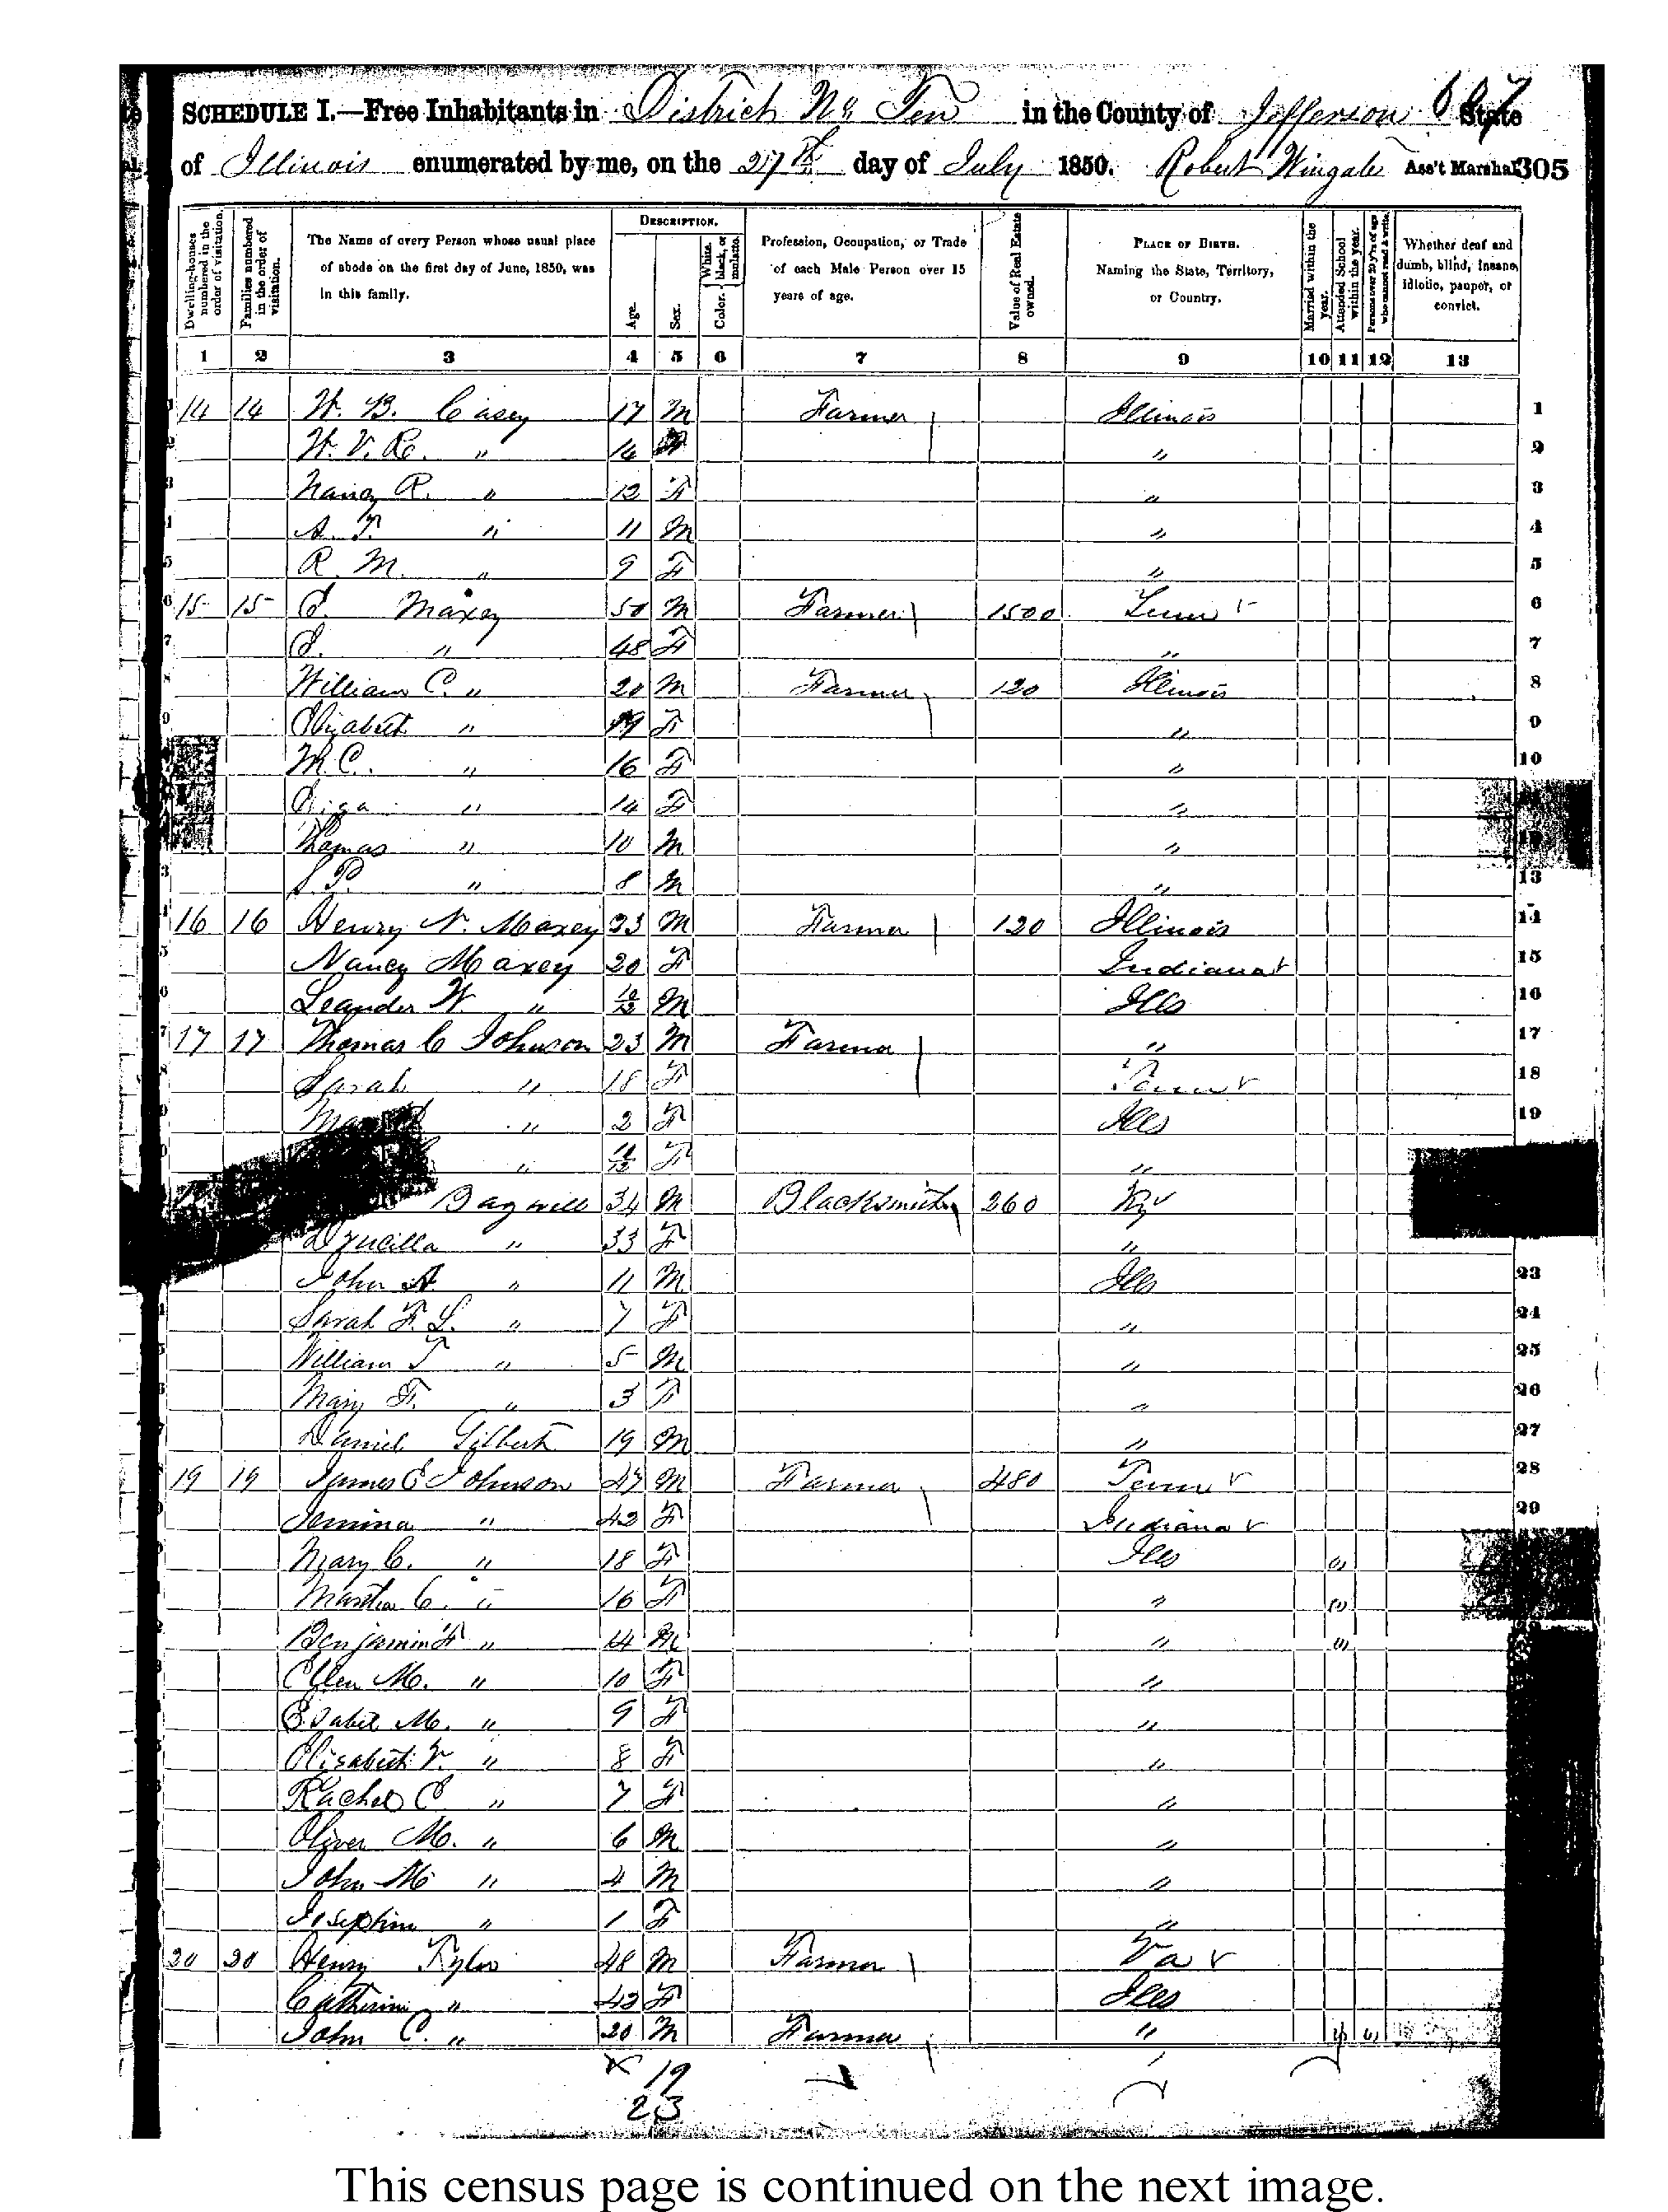 SCHEDULE I.—Free Inhabitants in District No Ten in the County of Jefferson State
of Illinois enumerated by me, on the 27th day of July 1850. Robert Wingate Ass't Marshal 305
Dwelling-houses numbered in the order of visitation.
Families numbered in the order of visitation.
The Name of every Person whose usual place of abode on the first day of June, 1850, was in this family.
DESCRIPTION.
Age.
Sex.
Color. White, black, or mulatto.
Profession, Occupation, or Trade of each Male Person over 15 years of age.
Value of Real Estate owned.
PLACE OF BIRTH. Naming the State, Territory, or Country.
Married within the year.
Attended School within the year.
Persons over 20 y'rs of age who cannot read & write.
Whether deaf and dumb, blind, insane, idiotic, pauper, or convict.
1 2 3 4 5 6 7 8 9 10 11 12 13
14 14 W. B. Casey 17 M Farmer Illinois 1
W. V. R. " 14 " 2
Nancy R. " 12 F " 3
A. T. " 11 M " 4
R. M. " 9 F " 5
15 15 Maxey 50 M Farmer 1500 Tenn 6
" 48 F " 7
William C. " 20 M Farmer 120 Illinois 8
Elizabeth " 19 F " 9
M. C. " 16 F " 10
" 14 F "
Thomas " 10 M "
S. P. " 8 M " 13
16 16 Henry N. Maxey 23 M Farmer 120 Illinois 14
Nancy Maxey 20 F Indiana 15
Leander W. " 10/12 M Ills 16
17 17 Thomas C Johnson 23 M Farmer " 17
Sarah " 18 F Tenn 18
" 2 F Ills 19
" F "
Bagwell 34 M Blacksmith 260 Ky
Drucilla " 33 F "
John A. " 11 M Ills 23
Sarah F. L. " 7 F " 24
William T " 5 M " 25
Mary F. " 3 F " 26
Daniel Gilbert 19 M " 27
19 19 James E Johnson 47 M Farmer 480 Tenn 28
Jemima " 42 F Indiana 29
Mary C. " 18 F Ills
Martha C. " 16 F "
Benjamin F " 14 M "
Ellen M. " 10 F "
Isabel M. " 9 F "
Elisabeth V. " 8 F "
Rachel C " 7 F "
Oliver M. " 6 M "
John M " 4 M "
Josephine " 1 F "
20 20 Henry Tyler 48 M Farmer Va
Catherine " 42 F Ills
John C. " 20 M Farmer "
19
23
This census page is continued on the next image.